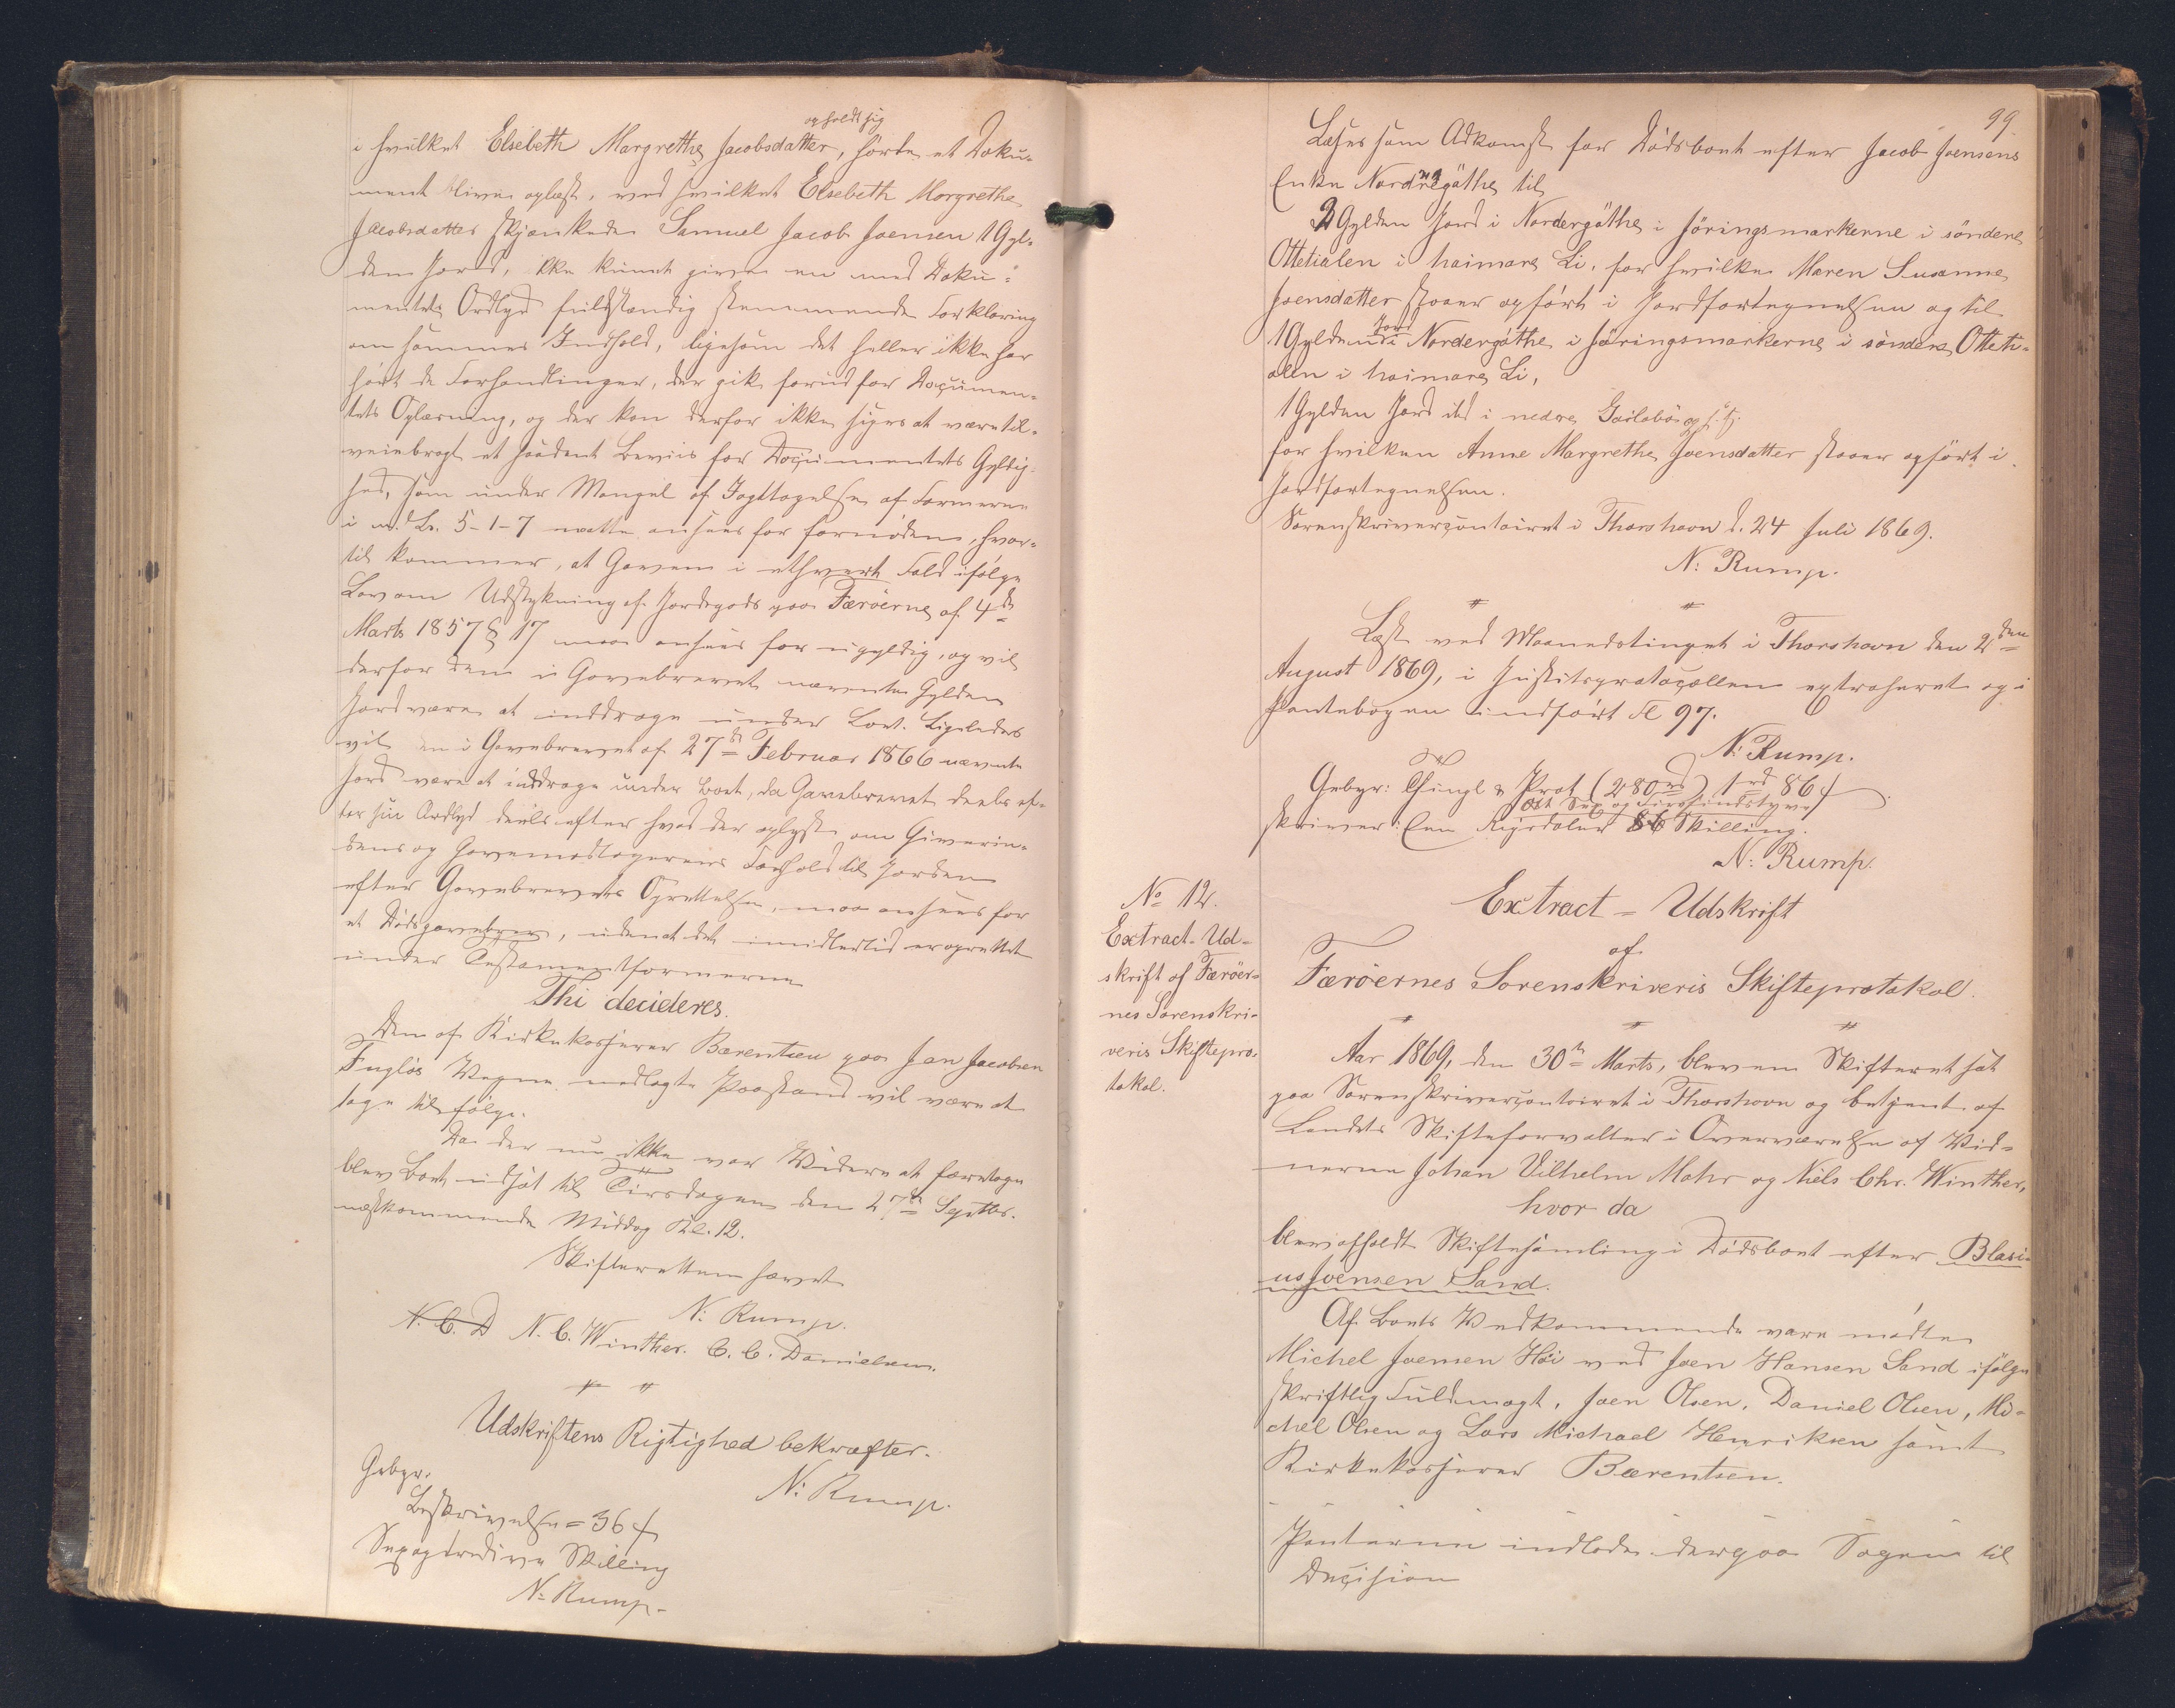 opholdt sig
i hvilket Elsebeth Margrethe Jacobsdatter, hörte et Doku-
ment blive oplæst, ved hvilket Elsebeth Margrethe
Jacobsdatter skjænkede Samuel Jacob Joensen 1 Gyl-
den Jord, ikke kunnet give en med Doku-
mentets Ordlyd fuldstændig stemmende Forklaring
om sammes Indhold, ligesom det heller ikke har
hört de Forhandlinger, der gik forud for Documen-
tets Oplæsning, og der kan derfor ikke siges at være til-
veiebragt et saadant Beviis for Documentets Gyldig-
hed, som under Mangel af Iagttagelse af Formerne
i N. L. 5-1-7 maatte ansees for fornöden, hvor-
til kommer, at Gaven i ethvert Fald ifölge
Lov om Udstykning af Jordegods paa Færöerne af 4de
Marts 1857 § 17 maa ansees for ugyldig, og vil
derfor den i Gavebrevet nævnte Gylden
Jord være at inddrage under Boet. Ligeledes
vil den i Gavebrevet af 27de Februar 1866 nævnte
Jord være at inddrage under Boet, da Gavebrevet deels ef-
ter sin Ordlyd deels efter hvad der oplyst om Giverin-
dens og Gavemodtagerens Forhold til Jorden
efter Gavebrevets Oprettelse, maa ansees for
et Dödsgavebrev, uden at det imidlertid er oprettet
under Testamentformerne
Thi decideres.
Den af Kirkekasserer Bærentsen paa Jan Jacobsen
Fuglös Vegne nedlagte Paastand vil være at
tage til fölge.
Da der nu ikke var Videre at foretage
blev Boet udsat til Tirsdagen den 27de Septbr.
næstkommende Middag Kl. 12.
Skifteretten hævet
N. Rump.
N. C. D N. C. Winther. C. C. Danielsen.
Udskriftens Rigtighed bekræfter.
N. Rump.
Gebyr.
Beskrivelse = 36 ſ
Sexogtredive Skilling
N. Rump.
99.
Læses som Adkomst for Dödsboet efter Jacob Joensens
Enke Nordregöthe til
2 Gylden Jord i Nordergöthe i Söringsmarkerne i söndere
Ottetialen i haimara Li, for hvilke Maren Susanne
Joensdatter staaer opfört i Jordfortegnelsen og til
1 Gylden Jord i Nordergöthe i Söringsmarkerne i söndere Otteti-
alen i haimara Li,
1 Gylden Jord ibd i nedre Garlabö
for hvilken Anne Margrethe Joensdatter staaer opfört i
Jordfortegnelsen.
Sorenskrivercontoiret i Thorshavn d. 24 Juli 1869.
N. Rump.
Læst ved Maanedstinget i Thorshavn den 2den
August 1869, i Justitsprotocollen extraheret og i
Pantebogen indfört Fl 97.
N. Rump.
Gebyr: Thingl & Prot (280 rd) 1 rd 86 ſ
skriver: Een Rigsdaler 86 Skilling.
N. Rump.
No 12.
Extract-Ud-
skrift af Færöer-
nes Sorenskri-
veris Skiftepro-
tokol.
Extract-Udskrift
af
Færöernes Sorenskriveris Skifteprotokol.
Aar 1869, den 30te Marts, blev en Skifteret sat
paa Sorenskrivercontoiret i Thorshavn og betjent af
Landets Skifteforvalter i Overværelse af Vid-
nerne Johan Vilhelm Mohr og Niels Chr. Winther,
hvor da
blev afholdt Skiftesamling i Dödsboet efter Blasi-
us Joensen Sand.
Af Boets Vedkommende vare mödte
Michel Joensen Höi ved Joen Hansen Sand ifölge
skriftlig Fuldmagt, Joen Olsen, Daniel Olsen, Mi-
chel Olsen og Lars Michael Henriksen samt
Kirkekasserer Bærentsen.
Parterne indlode derpaa Sagen til
Decision